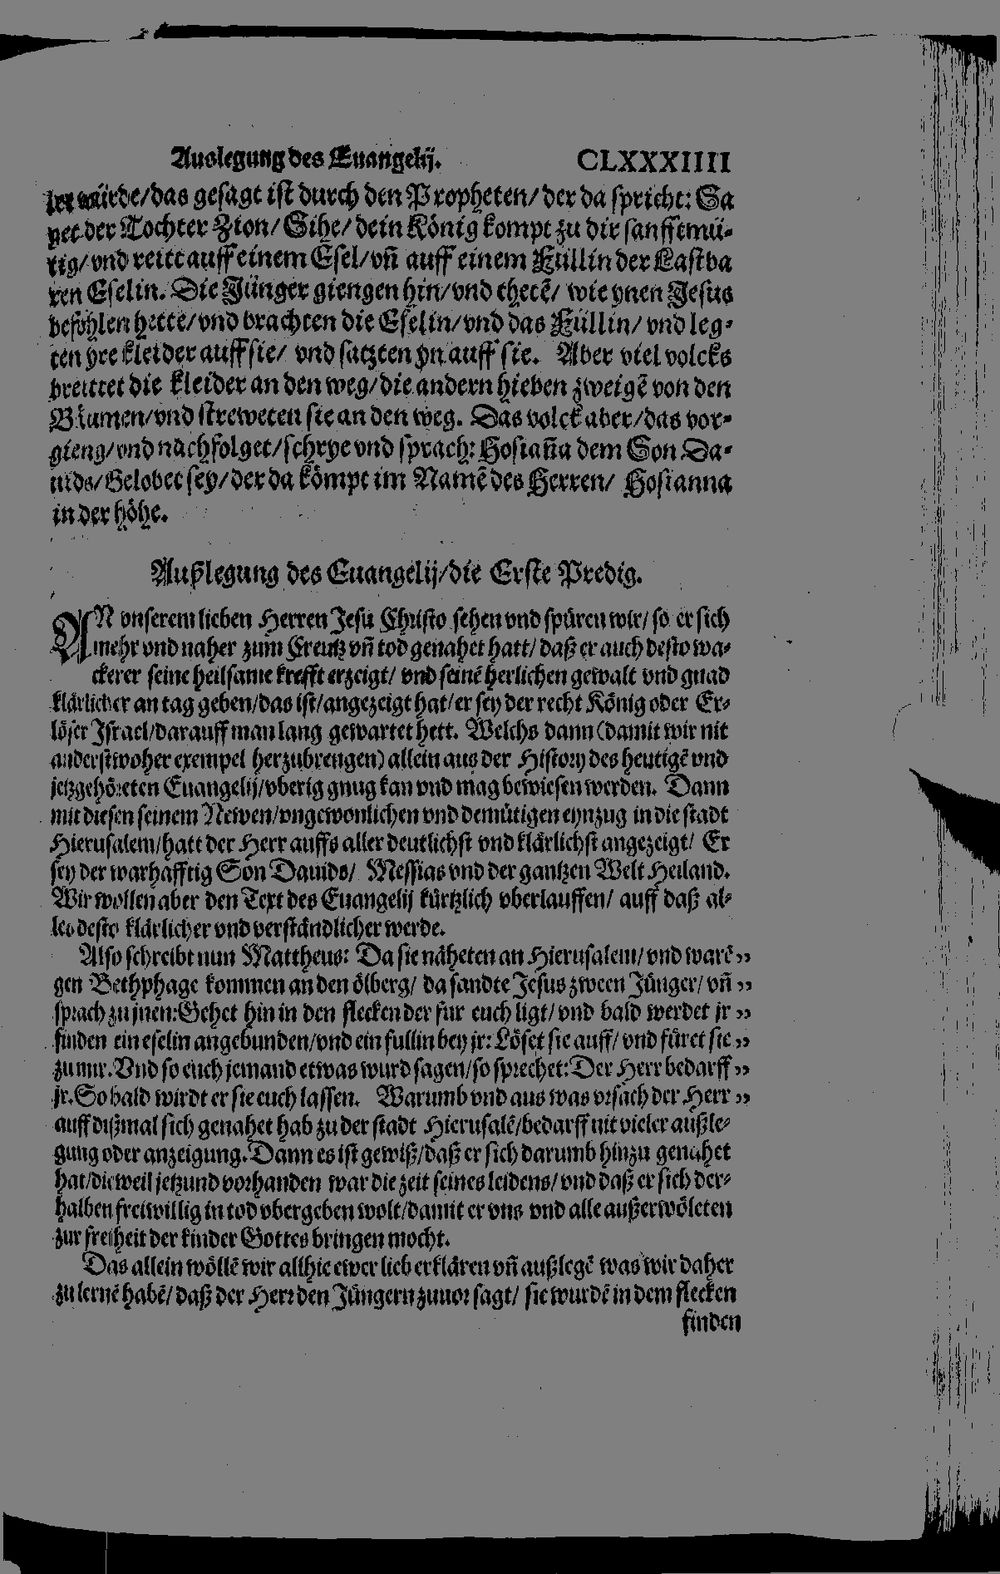 Auslegung des Euangelij. CLXXXIIII
let würde/das gesagt ist durch den Propheten/ der da spricht: Sa
get der Tochter Zion/ Sihe/ dein König kompt zu dir sanfftmü-
tig/ vnd reitt auff einem Esel/ vñ auff einem Füllin der Lastba
ren Eselin. Die Jünger giengen hin/ vnd thetẽ/ wie ynen Jesus
befohlen hette/ vnd brachten die Eselin/ vnd das Füllin/ vnd leg-
ten yre kleider auff sie/ vnd satzten yn auff sie. Aber viel volcks
breittet die kleider an den weg/ die andern hieben zweigẽ von den
Bäumen/ vnd streweten sie an den weg. Das volck aber/ das vor-
gieng/ vnd nachfolget/ schrye vnd sprach: Hosiaña dem Son Da-
uids/ Gelobet sey/ der da kömpt im Namẽ des Herren/ Hosianna
in der höhe.
Außlegung des Euangelij/ die Erste Predig.
AN vnserem lieben Herren Jesu Christo sehen vnd spüren wir/ so er sich
mehr vnd naher zum Creutz vñ tod genahet hatt/ daß er auch desto wa-
ckerer seine heilsame krefft erzeigt/ vnd seinẽ herlichen gewalt vnd gnad
klärlicher an tag geben/ das ist/ angezeigt hat/ er sey der recht König oder Er-
löser Israel/ darauff man lang gewartet hett. Welchs dann (damit wir nit
anderstwoher exempel herzubrengen) allein aus der History des heutigẽ vnd
jetzgehöreten Euangelij/ vberig gnug kan vnd mag bewiesen werden. Dann
mit diesen seinem Newen/ vngewonlichen vnd demütigen eynzug in die stadt
Hierusalem/ hatt der Herr auffs aller deutlichst vnd klärlichst angezeigt/ Er
sey der warhafftig Son Dauids/ Messias vnd der gantzen Welt Heiland.
Wir wollen aber den Text des Euangelij kürtzlich vberlauffen/ auff daß al-
les desto klärlicher vnd verständlicher werde.
Also schreibt nun Mattheus: Da sie näheten an Hierusalem/ vnd warẽ „
gen Bethphage kommen an den ölberg/ da sandte Jesus zween Jünger/ vñ „
sprach zu jnen: Gehet hin in den flecken der fur euch ligt/ vnd bald werdet jr „
finden ein eselin angebunden/ vnd ein fullin bey jr: Löset sie auff/ vnd füret sie „
zu mir. Vnd so euch jemand etwas wurd sagen/ so sprechet: Der Herr bedarff „
jr. So bald wirdt er sie euch lassen. Warumb vnd aus was vrsach der Herr „
auff dißmal sich genahet hab zu der stadt Hierusalẽ/ bedarff nit vieler außle-
gung oder anzeigung. Dann es ist gewiß/ daß er sich darumb hinzu genahet
hat/ dieweil jetzund vorhanden war die zeit seines leidens/ vnd daß er sich der-
halben freiwillig in tod vbergeben wolt/ damit er vns vnd alle außerwöleten
zur freiheit der kinder Gottes bringen mocht.
Das allein wöllẽ wir allhie ewer lieb erklären vñ außlegẽ was wir daher
zu lernẽ habẽ/ daß der Herr den Jüngern zuuor sagt/ sie wurdẽ in dem flecken
finden